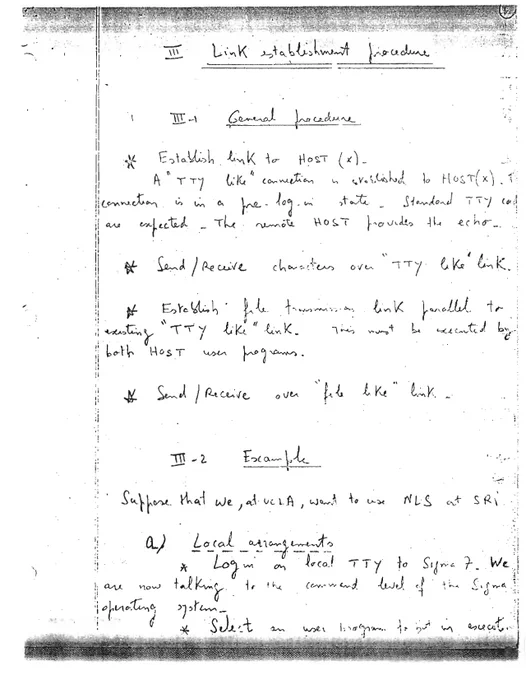 III Link establishment procedure
III-1 General procedure
* Establish link to HOST (x).
A "TTY like" connection is established to HOST(x). T
connection is in a pre-log-in state. Standard TTY co
are expected. The remote HOST provides the echo.
* Send/Receive characters over "TTY like" link.
* Establish file transmission link parallel to
existing "TTY like" link. This must be executed by
both HOST user programs.
* Send/Receive over "file like" link.
III-2 Example
Suppose that we, at UCLA, want to use NLS at SRI
a) Local arrangements
* Log in on local TTY to Sigma 7. We
are now talking to the command level of the Sigma
operating system.
* Select an user program to put in execut.